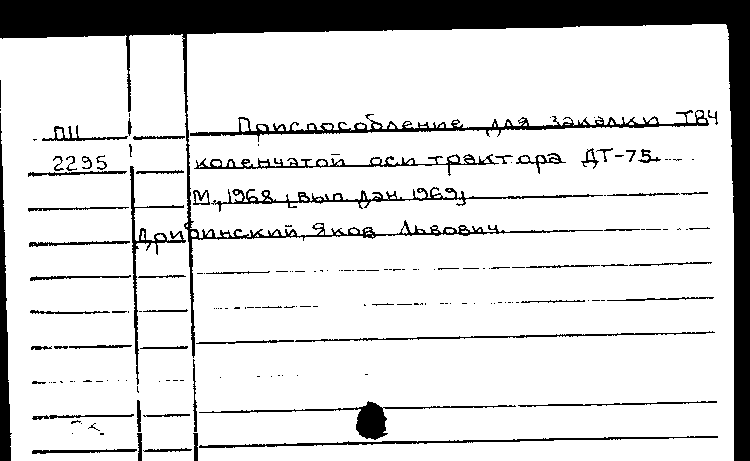 ПП Приспособление для закалки ТВЧ
2295 коленчатой оси трактора ДТ-75.
М., 1968 [вып. дан. 1969].
Дрибинский, Яков Львович.